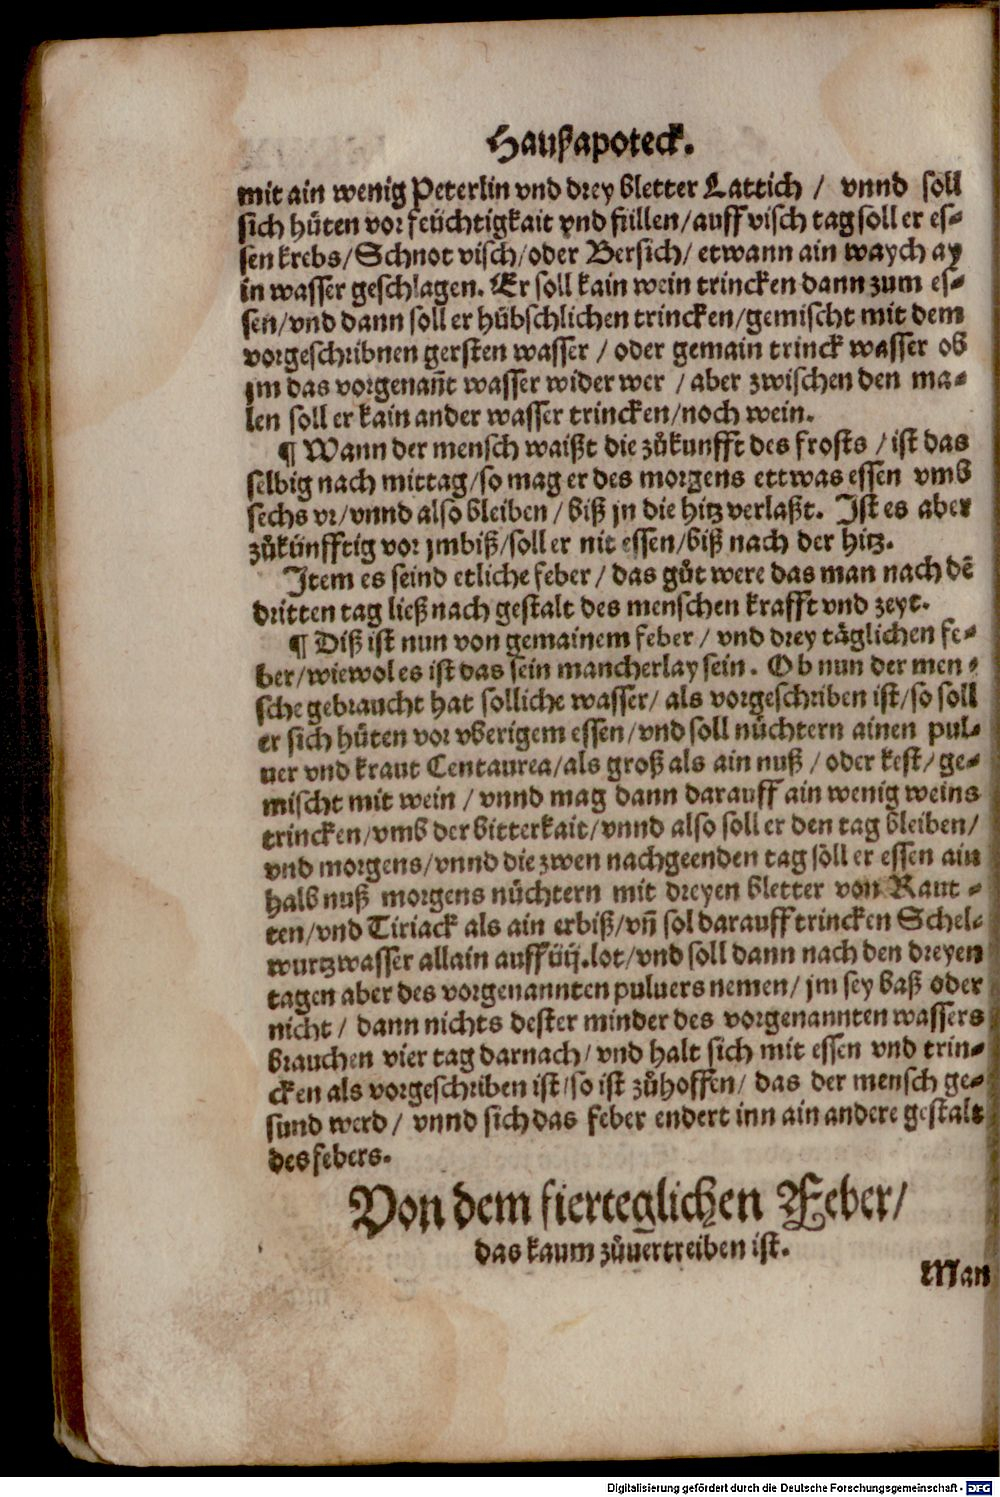 Haußapoteck.
mit ain wenig Peterlin vnd drey bletter Lattich / vnnd soll
sich hüten vor feüchtigkait vnd füllen/auff visch tag soll er es-
sen krebs/Schnot visch/oder Bersich/ etwann ain waych ay
in wasser geschlagen. Er soll kain wein trincken dann zum es-
sen/vnd dann soll er hübschlichen trincken/gemischt mit dem
vorgeschribnen gersten wasser / oder gemain trinck wasser ob
jm das vorgenañt wasser wider wer / aber zwischen den ma-
len soll er kain ander wasser trincken/noch wein.
¶ Wann der mensch waißt die zůkunfft des frosts / ist das
selbig nach mittag/so mag er des morgens ettwas essen vmb
sechs vr/vnnd also bleiben / biß jn die hitz verlaßt. Ist es aber
zůkünfftig vor jmbiß/soll er nit essen/biß nach der hitz.
Item es seind etliche feber / das gůt were das man nach dē
dritten tag ließ nach gestalt des menschen krafft vnd zeyt.
¶ Diß ist nun von gemainem feber / vnd drey täglichen fe-
ber/wiewol es ist das sein mancherlay sein. Ob nun der men-
sche gebraucht hat solliche wasser/ als vorgeschriben ist/so soll
er sich hüten vor vberigem essen/vnd soll nüchtern ainen pul-
uer vnd kraut Centaurea/als groß als ain nuß / oder kest/ ge-
mischt mit wein / vnnd mag dann darauff ain wenig weins
trincken/vmb der bitterkait/vnnd also soll er den tag bleiben/
vnd morgens/vnnd die zwen nachgeenden tag soll er essen ain
halb nuß morgens nüchtern mit dreyen bletter von Raut-
ten/vnd Tiriack als ain erbiß/vñ sol darauff trincken Schel-
wurtzwasser allain auff iiij.lot/vnd soll dann nach den dreyen
tagen aber des vorgenannten puluers nemen/ jm sey baß oder
nicht / dann nichts dester minder des vorgenannten wassers
brauchen vier tag darnach/ vnd halt sich mit essen vnd trin-
cken als vorgeschriben ist/so ist zůhoffen/ das der mensch ge-
sund werd / vnnd sich das feber endert inn ain andere gestalt
des febers.
Von dem fierteglichen Feber/
das kaum zůuertreiben ist.
Man
Digitalisierung gefördert durch die Deutsche Forschungsgemeinschaft - DFG